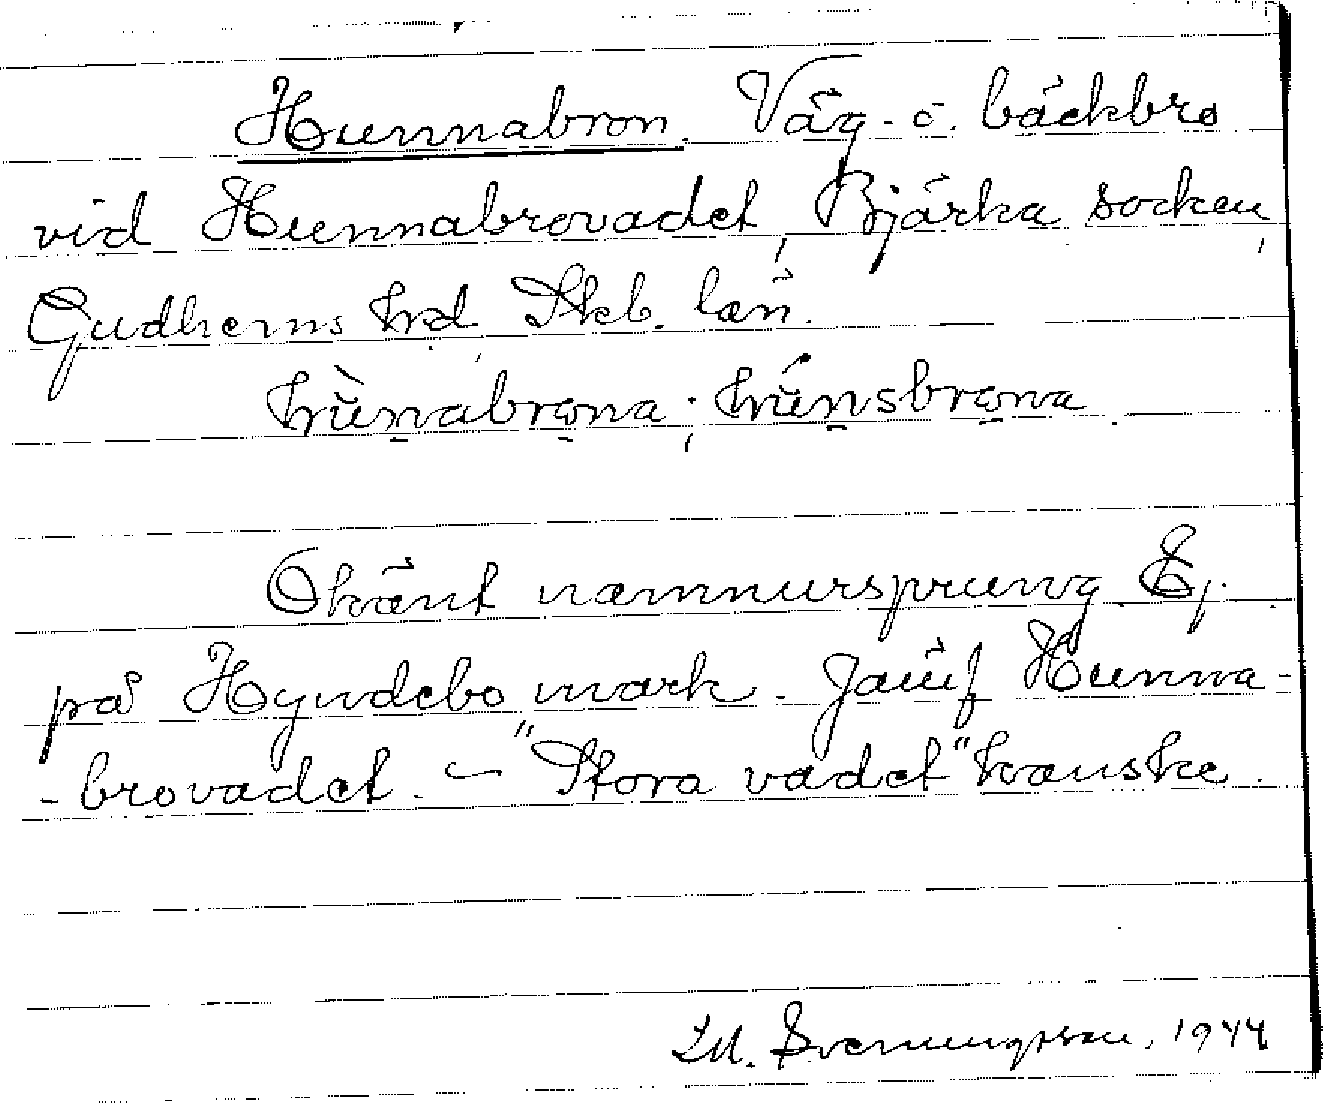 Hunnabron. Väg- o. bäckbro
vid Hunnabrovadet, Bjärka socken,
Gudhems hrd, Skb. län.
hùnabrona; húnsbrona.
Okänt namnursprung. Ej.
på Hyndebo mark. Jämf Hunna-
-brovadet. — "Stora vadet" kanske.
Svenungsson, 1944